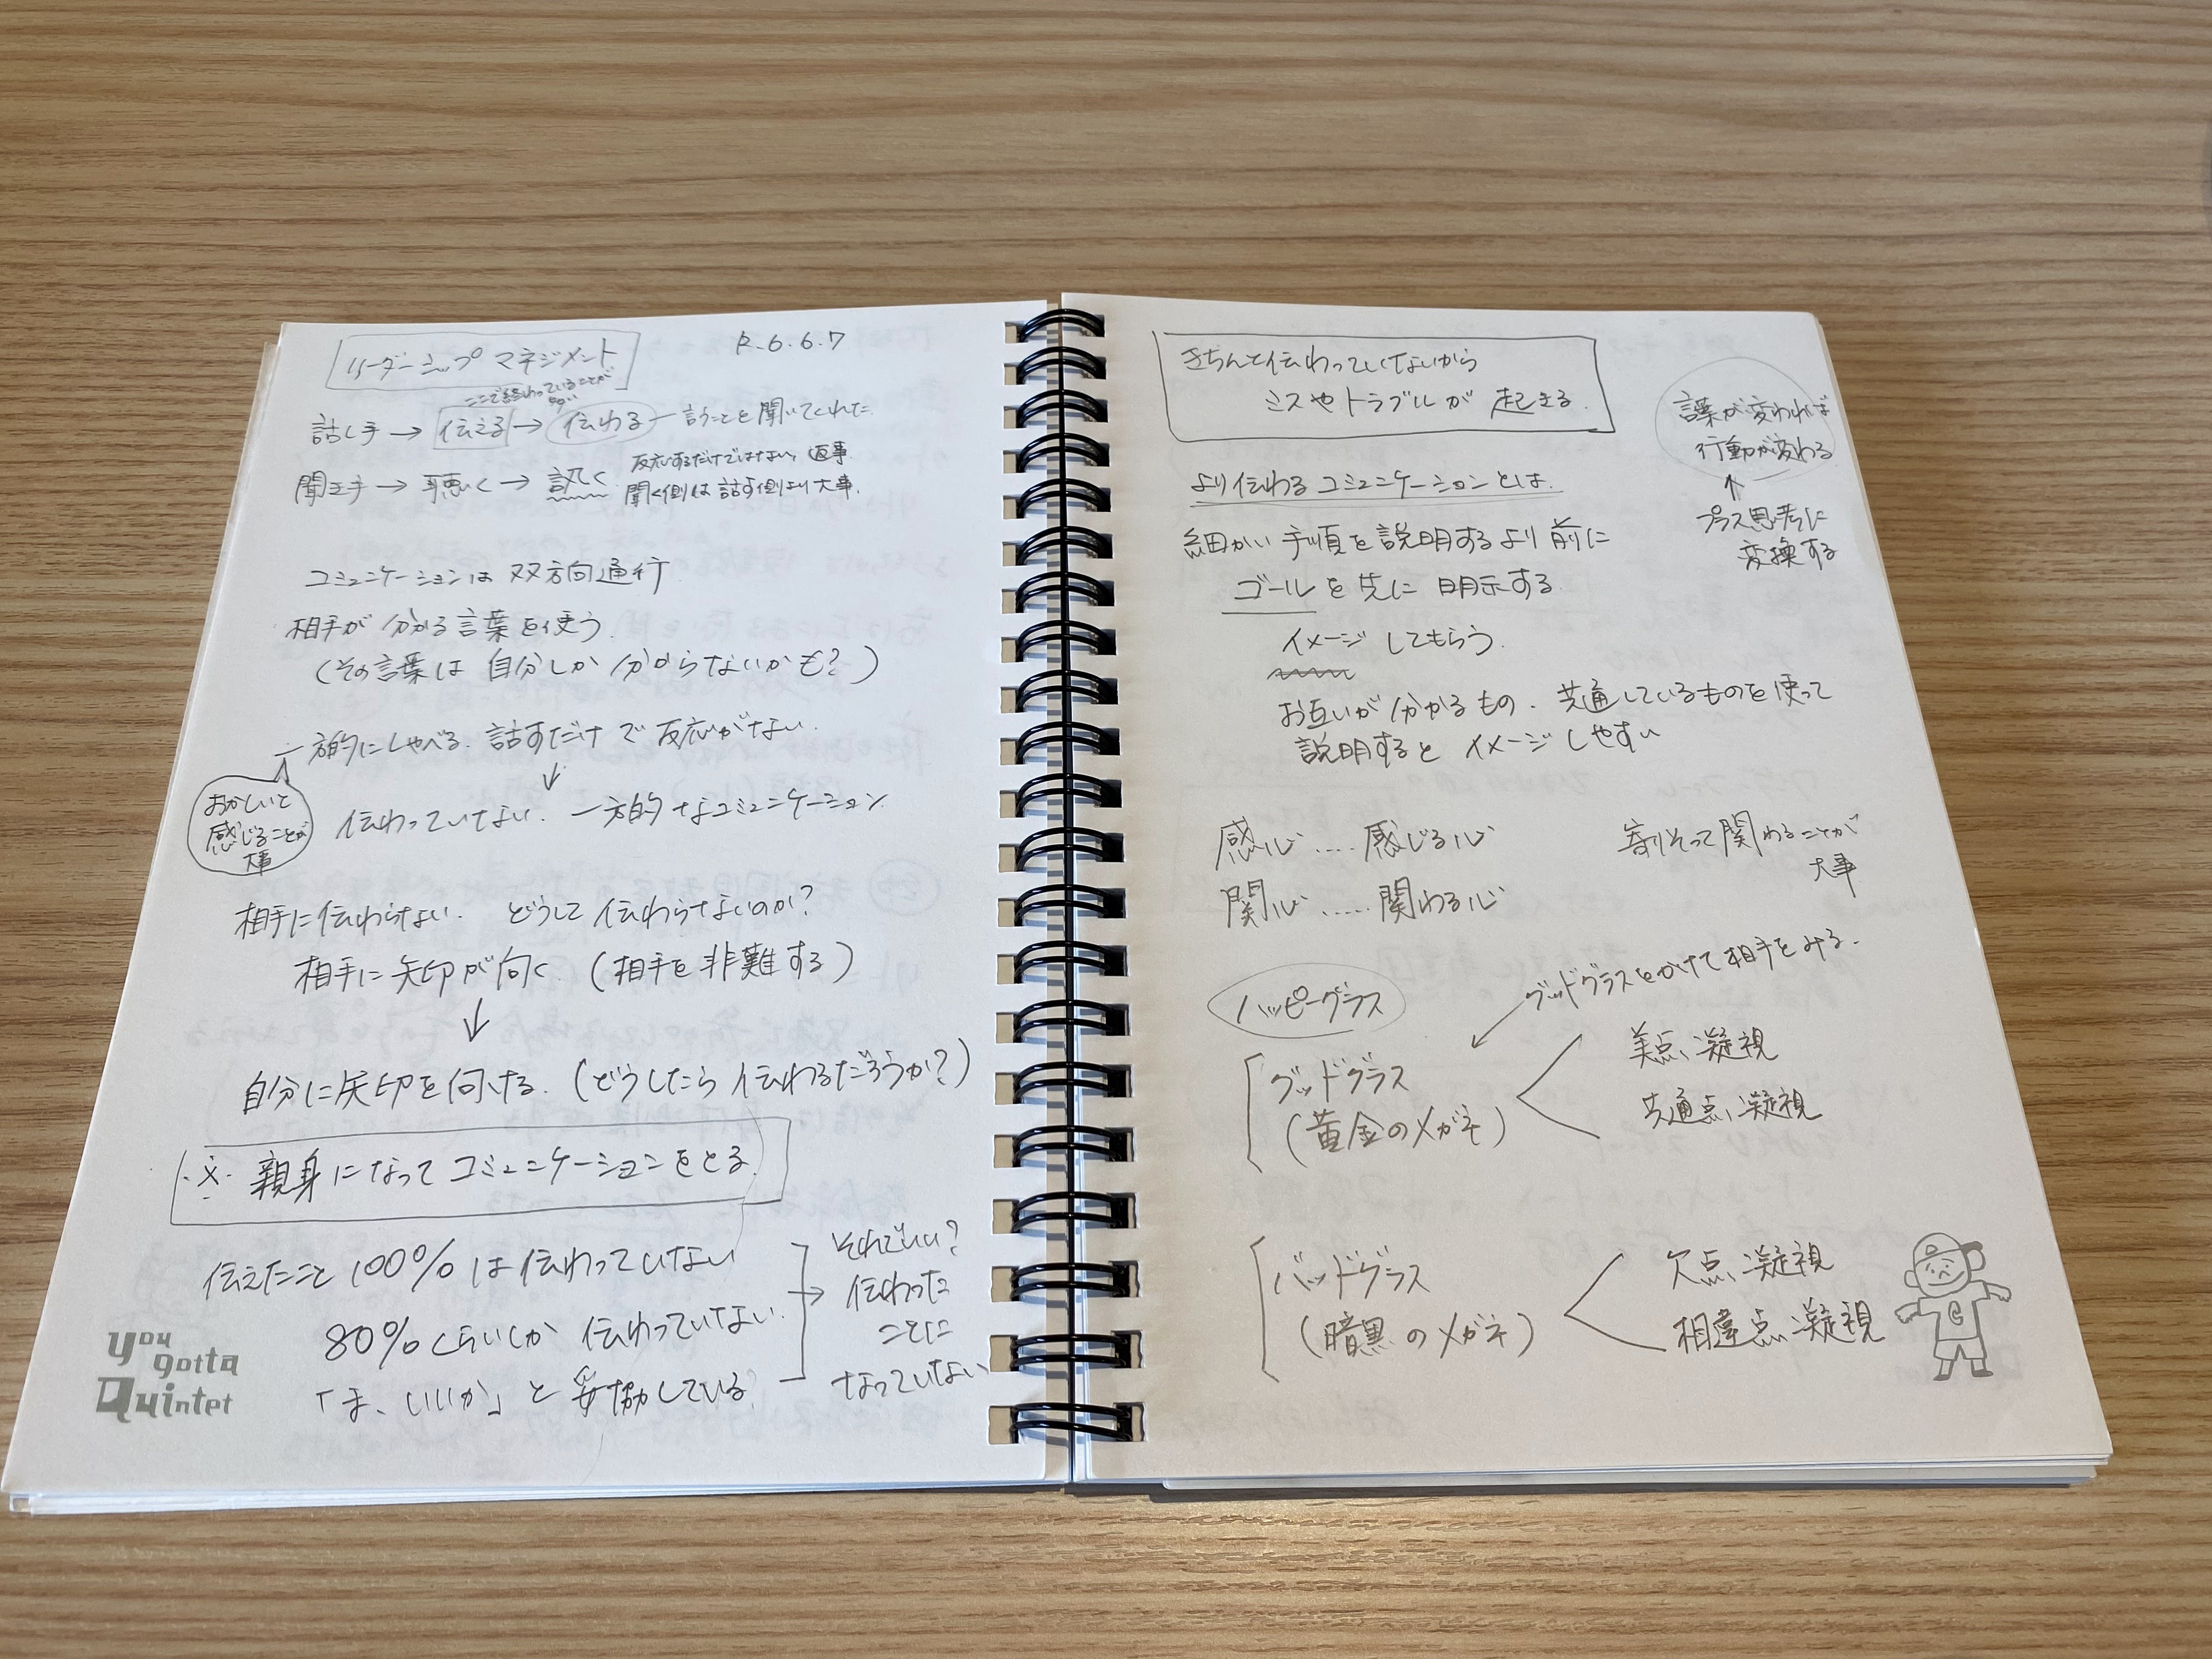 リーダーシップマネジメント
R.6.6.7
ここで終わっていることが多い
話し手→伝える→伝わる－言うことを聞いてくれた
聞き手→聴く→訊く
反応するだけではない、返事
聞く側は話す側より大事.
コミュニケーションは双方向通行
相手が分かる言葉を使う.
(その言葉は自分しか分からないかも?)
一方的にしゃべる. 話すだけで反応がない.
↓
おかしいと
感じることが
大事
伝わっていない. 一方的なコミュニケーション
相手に伝わらない. どうして伝わらないのか?
相手に矢印が向く. (相手を非難する)
↓
自分に矢印を向ける. (どうしたら伝わるだろうか?)
※ 親身になってコミュニケーションをとる
伝えたこと100%は伝わっていない
80%くらいしか伝わっていない.
「ま、いいか」と妥協している.
→
それでいい?
伝わった
ことに
なっていない
you
gotta
Quintet
きちんと伝わっていないから
ミスやトラブルが起きる.
言葉が変われば
行動が変わる
↑
プラス思考に
変換する
より伝わるコミュニケーションとは.
細かい手順を説明するより前に
ゴールを先に明示する
イメージしてもらう.
お互いが分かるもの. 共通しているものを使って
説明するとイメージしやすい
感心....感じる心
関心.....関わる心
寄りそって関わることが
大事
ハッピーグラス
グッドグラスをかけて相手をみる.
グッドグラス
(黄金のメガネ)
美点凝視
共通点凝視
バッドグラス
(暗黒のメガネ)
欠点凝視
相違点凝視